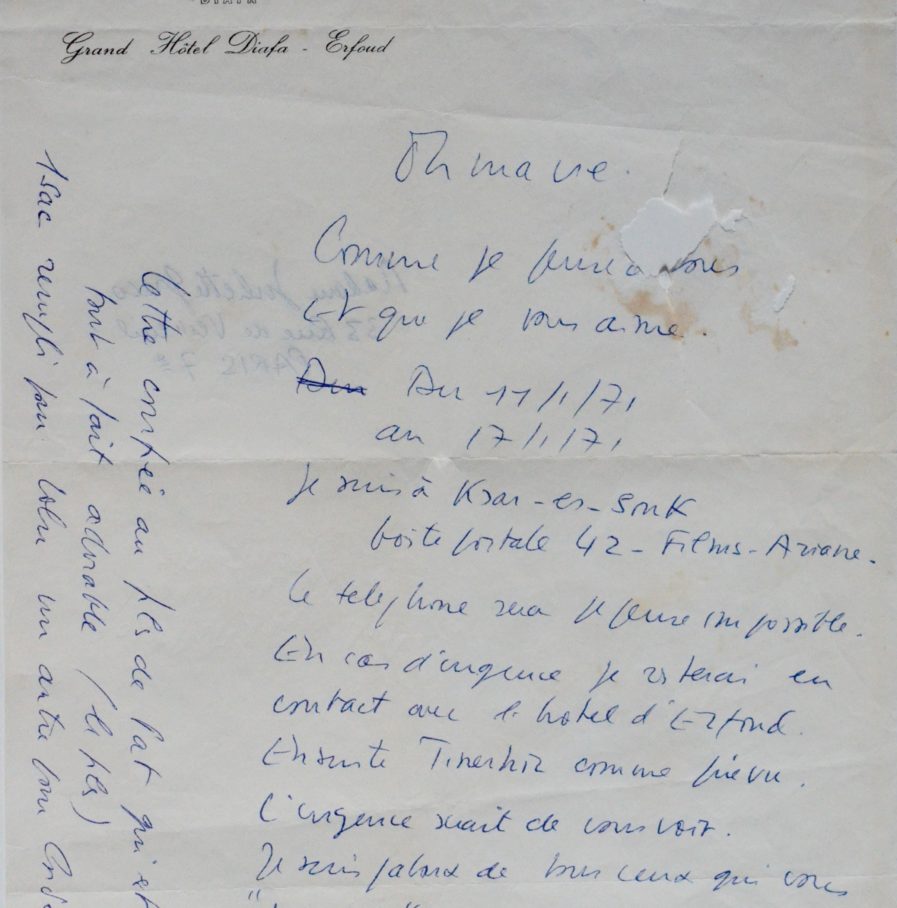 Grand Hôtel Diafa - Erfoud
Oh ma vie.
Comme je pense à vous
Et que je vous aime.
Du 11/1/71
au 17/1/71
Je suis à Ksar-es-Souk
boite postale 42 - Films-Ariane.
Le telephone sera je pense impossible.
En cas d'urgence je resterai en
contact avec le hotel d'Erfoud.
Ensuite Tinerhir comme prévu.
L'urgence serait de vous voir.
Je suis jaloux de tous ceux qui vous
Lettre confiée au fils de Pat qui est
tout à fait adorable (le fils)
1 sac rempli pour un autre pour
PARIS 7e